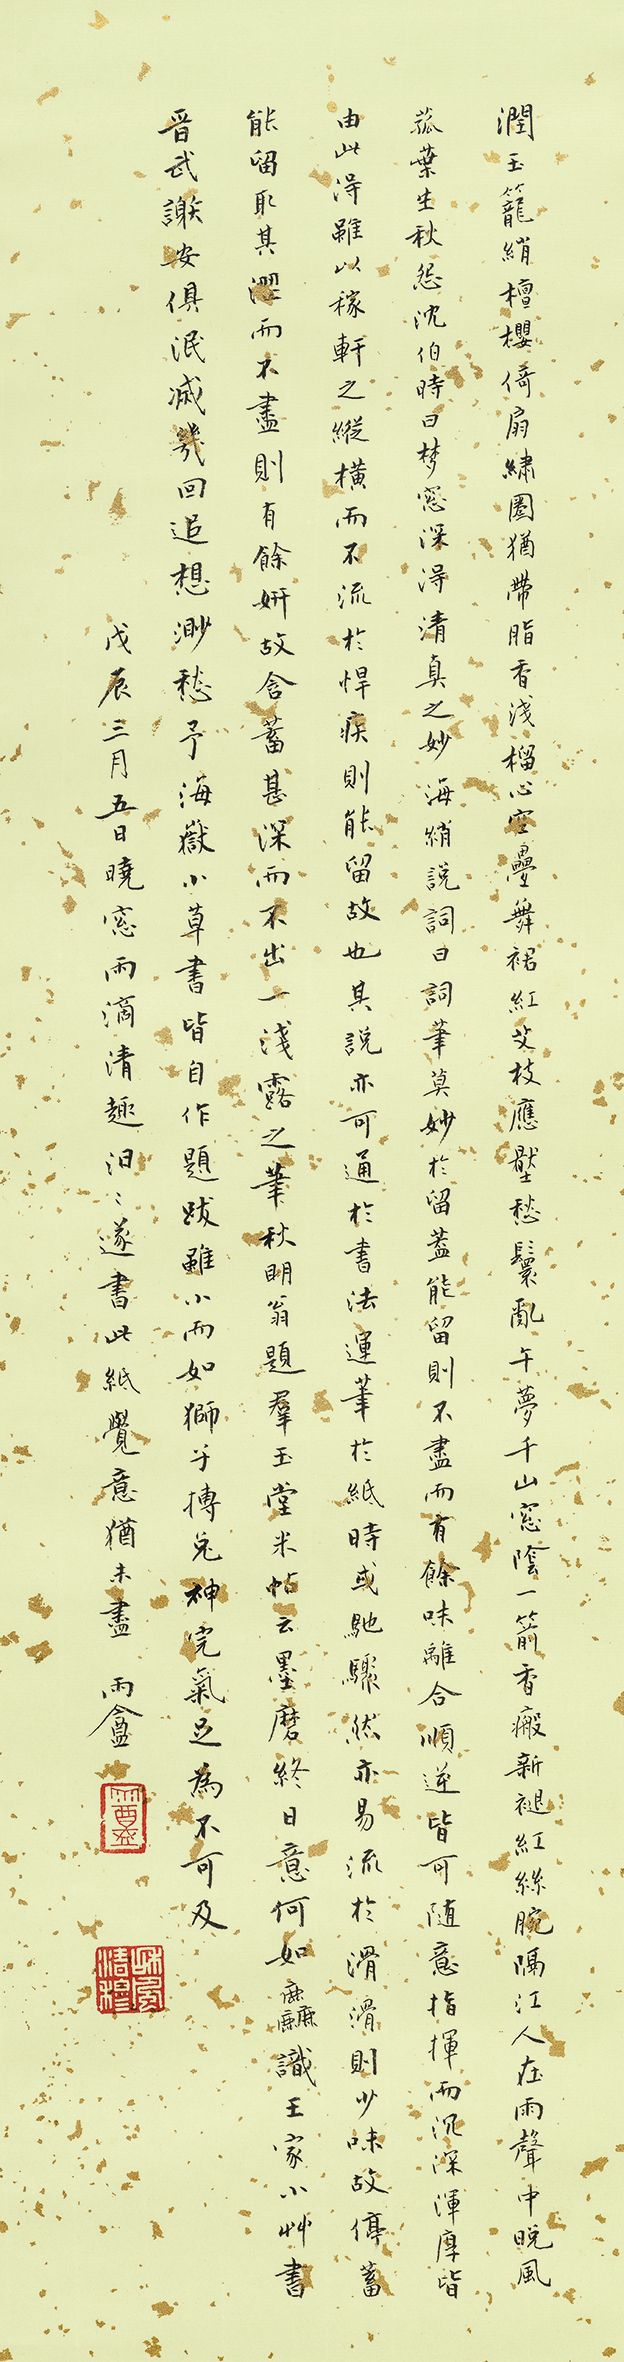 潤玉籠綃檀櫻倚扇繡圈猶帶脂香淺榴心空疊舞裙紅艾枝應壓愁鬟亂午夢千山窓陰一箭香瘢新褪紅絲腕隔江人在雨聲中晚風
菰葉生秋怨沈伯時曰梦窓深得清真之妙海綃説詞曰詞筆莫妙於留蓋能留則不盡而有餘味離合順逆皆可随意指揮而沉深渾厚皆
由此得雖以稼軒之縱橫而不流於悍疾則能留故也其說亦可通於書法運筆於紙時或馳驟然亦易流於滑滑則少味故停蓄
能留取其澀而不盡則有餘妍故含蓄甚深而不出一淺露之筆秋明翁題羣玉堂米帖云墨磨終日意何如識王家小艸書
晋武謝安俱泯滅幾回追想渺愁予海嶽小草書皆自作題跋雖小而如獅子搏兔神完氣足為不可及
戊辰三月五日曉窓雨滴清趣汩〻遂書此紙覺意猶未盡 雨盦